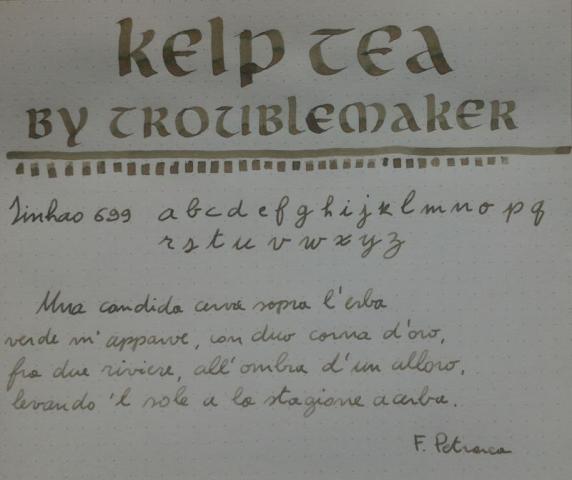 kelp tea
by troublemaker
Jinhao 699 a b c d e f g h i j k l m n o p q
r s t u v w x y z
Una candida cerva sopra l'erba
verde m'apparve, con duo corna d'oro,
fra due riviere, all'ombra d'un alloro,
levando 'l sole a la stagione acerba.
F. Petrarca